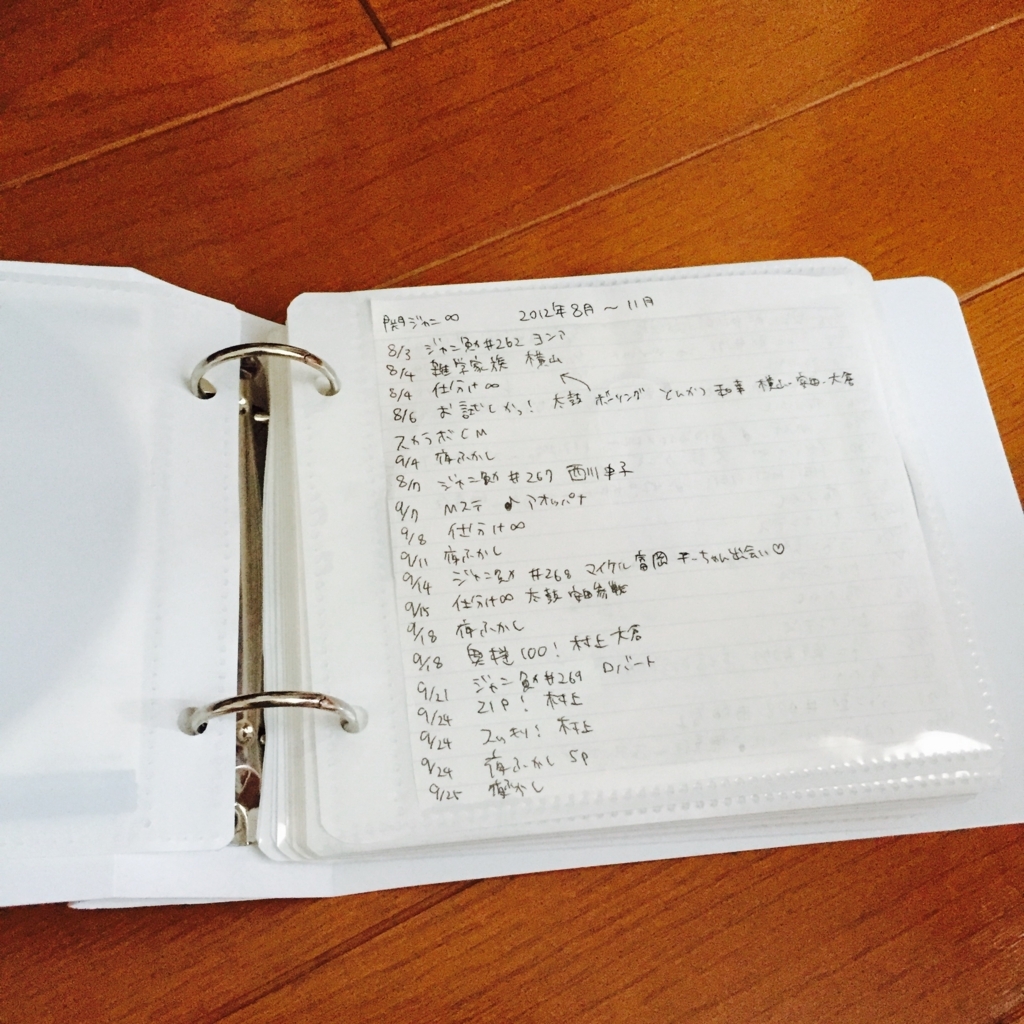 関ジャニ∞ 2012年8月〜11月
8/3 ジャニ勉#262 ヨンア
8/4 雑学家族 横山
8/4 仕分け∞
8/6 お試しかっ! 太鼓 ボーリング とんかつ 和幸 横山、安田、大倉
スカラボCM
9/4 夜ふかし
8/7 ジャニ勉#267 西川史子
9/7 Mステ ♪アオッパナ
9/8 仕分け∞
9/11 夜ふかし
9/14 ジャニ勉 #268 マイケル富岡 ちゃん出会い♡
9/15 仕分け∞ 太鼓 安田参戦
9/18 夜ふかし
9/18 奥様100! 村上大倉
9/21 ジャニ勉#269 ロバート
9/24 ZIP! 村上
9/24 スッキリ! 村上
9/24 夜ふかし SP
9/25 夜ふかし